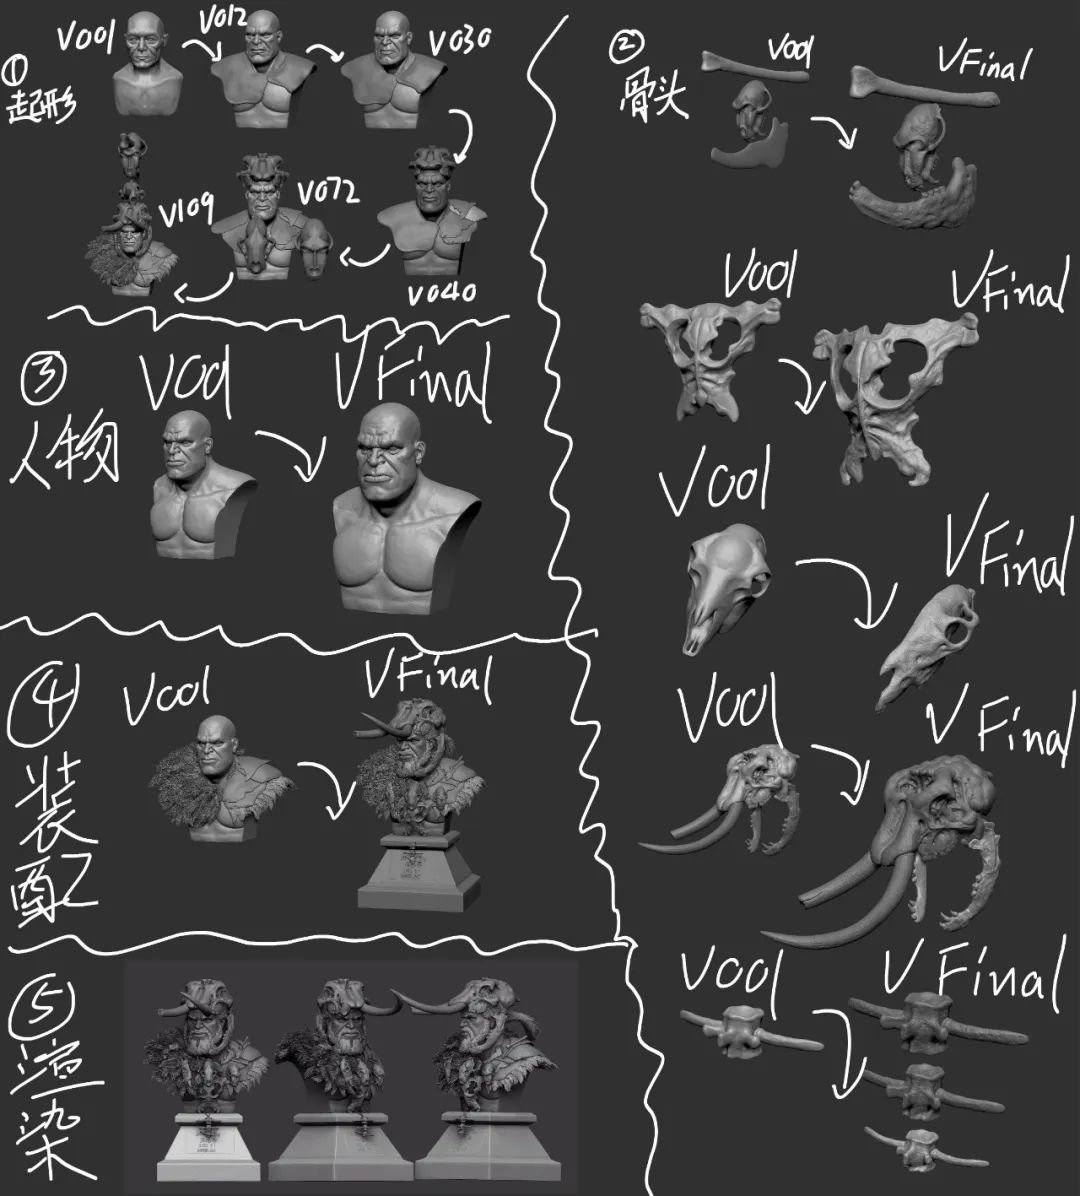 ①
起形
V001
V012
V030
V040
V072
V109
②
骨头
V001
VFinal
V001
VFinal
V001
VFinal
V001
VFinal
V001
VFinal
③
人物
V001
VFinal
④
装配
V001
VFinal
⑤
渲染